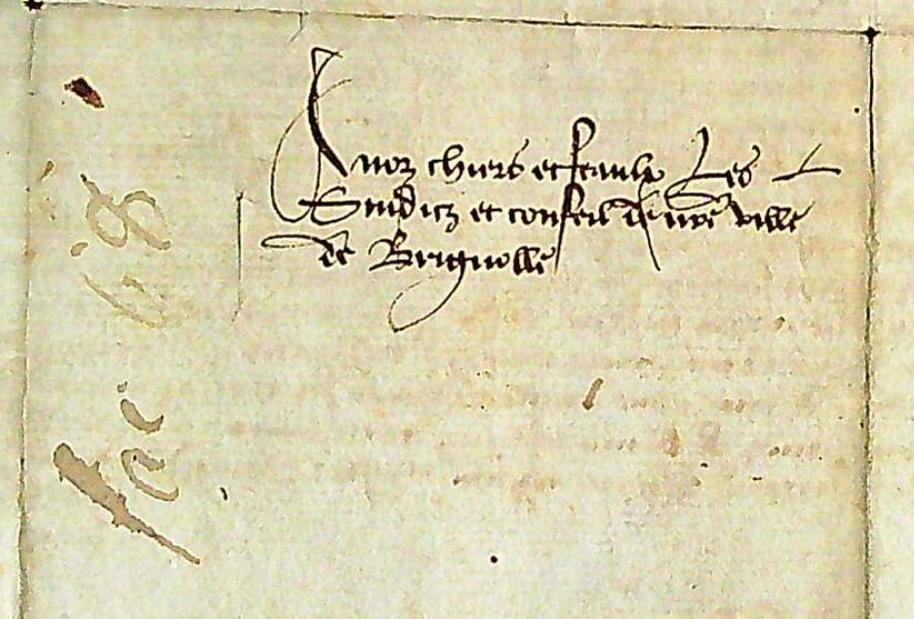 A noz chiers et feaulx Les
Sindicz et conseil de nre ville
de Brignolle